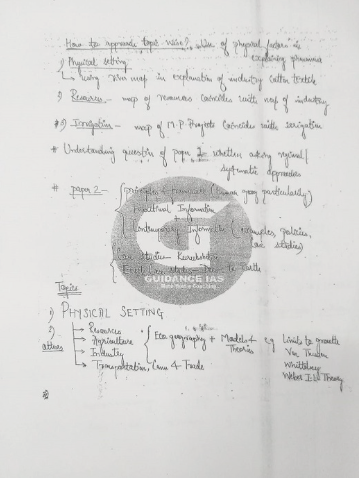 How to approach topic wise? Use of physical factors in explaining phenomena
1) Physical setting
↳ using river map in explanation of industry cotton textile
2) Resources - map of resources coincides with map of industry
3) Irrigation - map of M.P. Projects coincides with irrigation
* Understanding question of paper 2 - whether asking regional / systematic approaches
# paper 2 - principles + framework (human geog particularly)
Additional Information
Contemporary Information (examples, policies, case studies)
Case Studies - Kurukshetra
Down to Earth
GUIDANCE IAS
Topics
1) PHYSICAL SETTING
2) others
→ Resources
→ Agriculture
→ Industry
→ Transportation, Comm & Trade
Eco geography + Models & Theories e.g. Limits to growth
Von Thunen
Whittlesey
Weber I.L. Theory